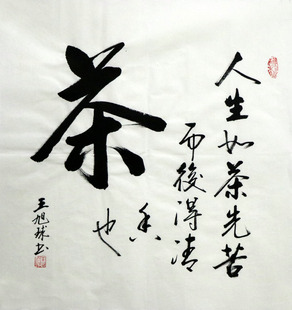 茶
人生如茶先苦
而後得清
香也
王旭球书